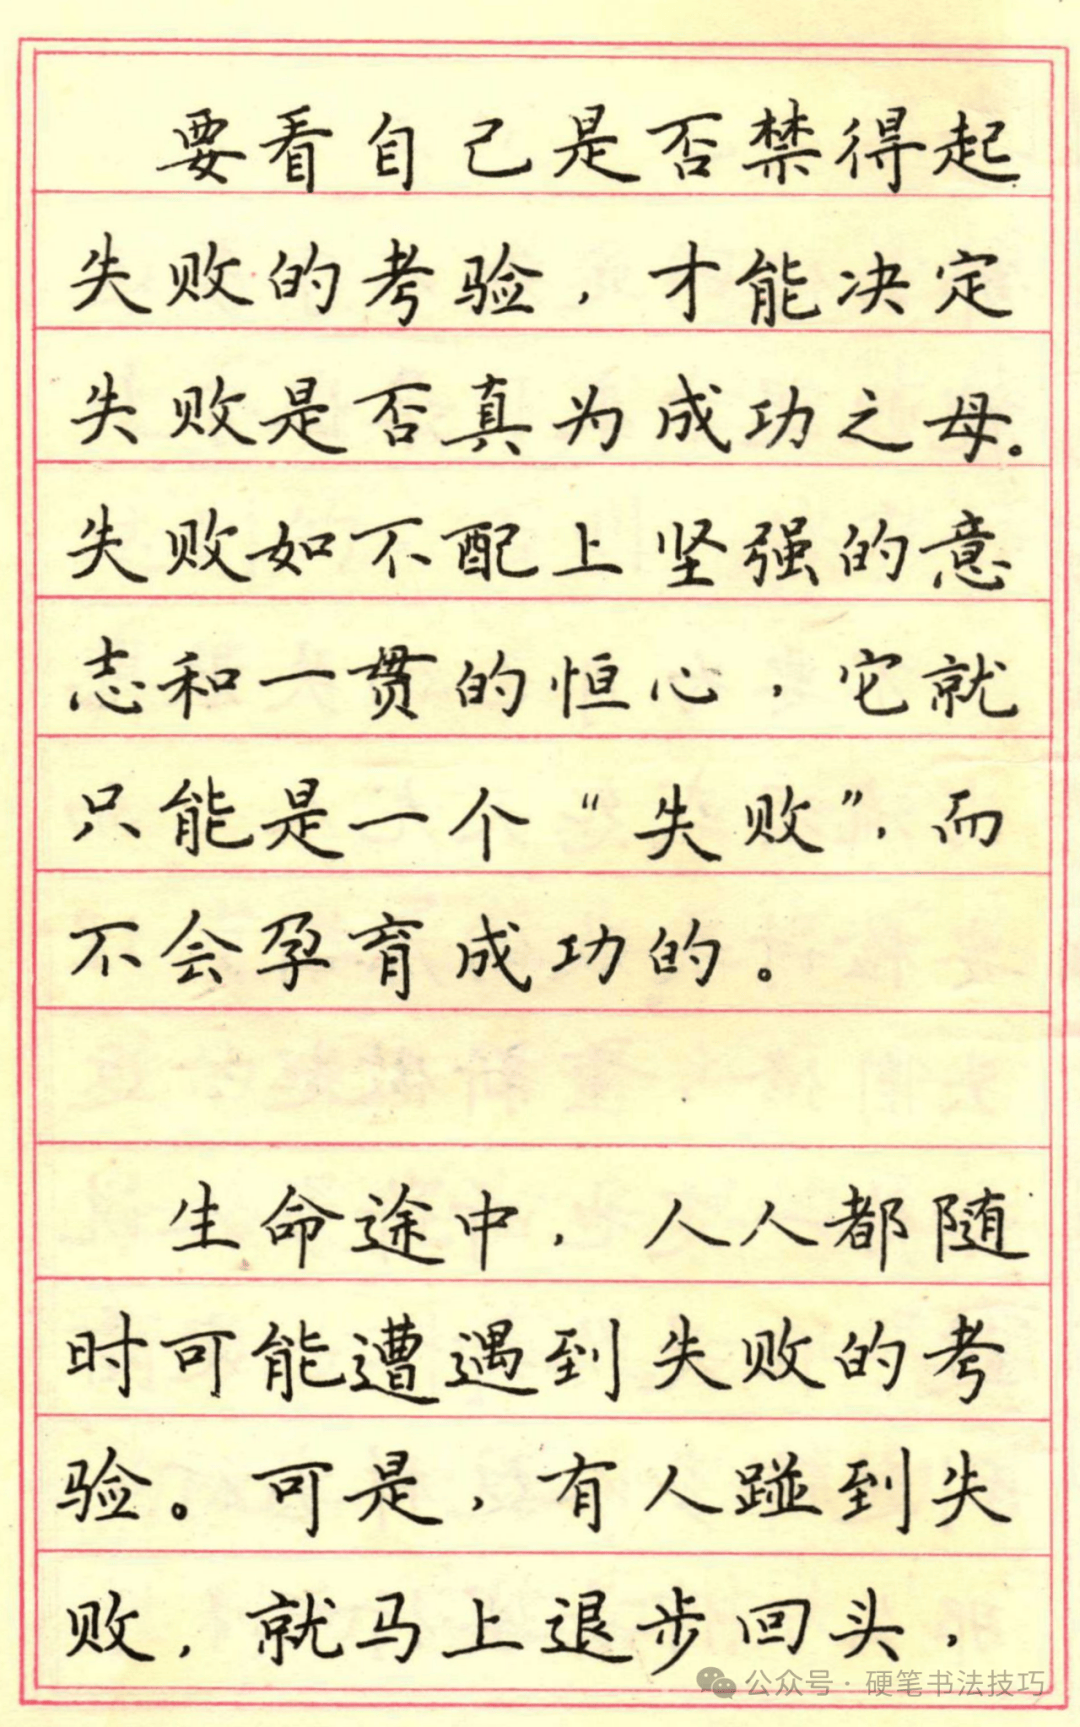 要看自己是否禁得起
失败的考验，才能决定
失败是否真为成功之母。
失败如不配上坚强的意
志和一贯的恒心，它就
只能是一个“失败”，而
不会孕育成功的。
生命途中，人人都随
时可能遭遇到失败的考
验。可是，有人踫到失
败，就马上退步回头，
公众号·硬笔书法技巧